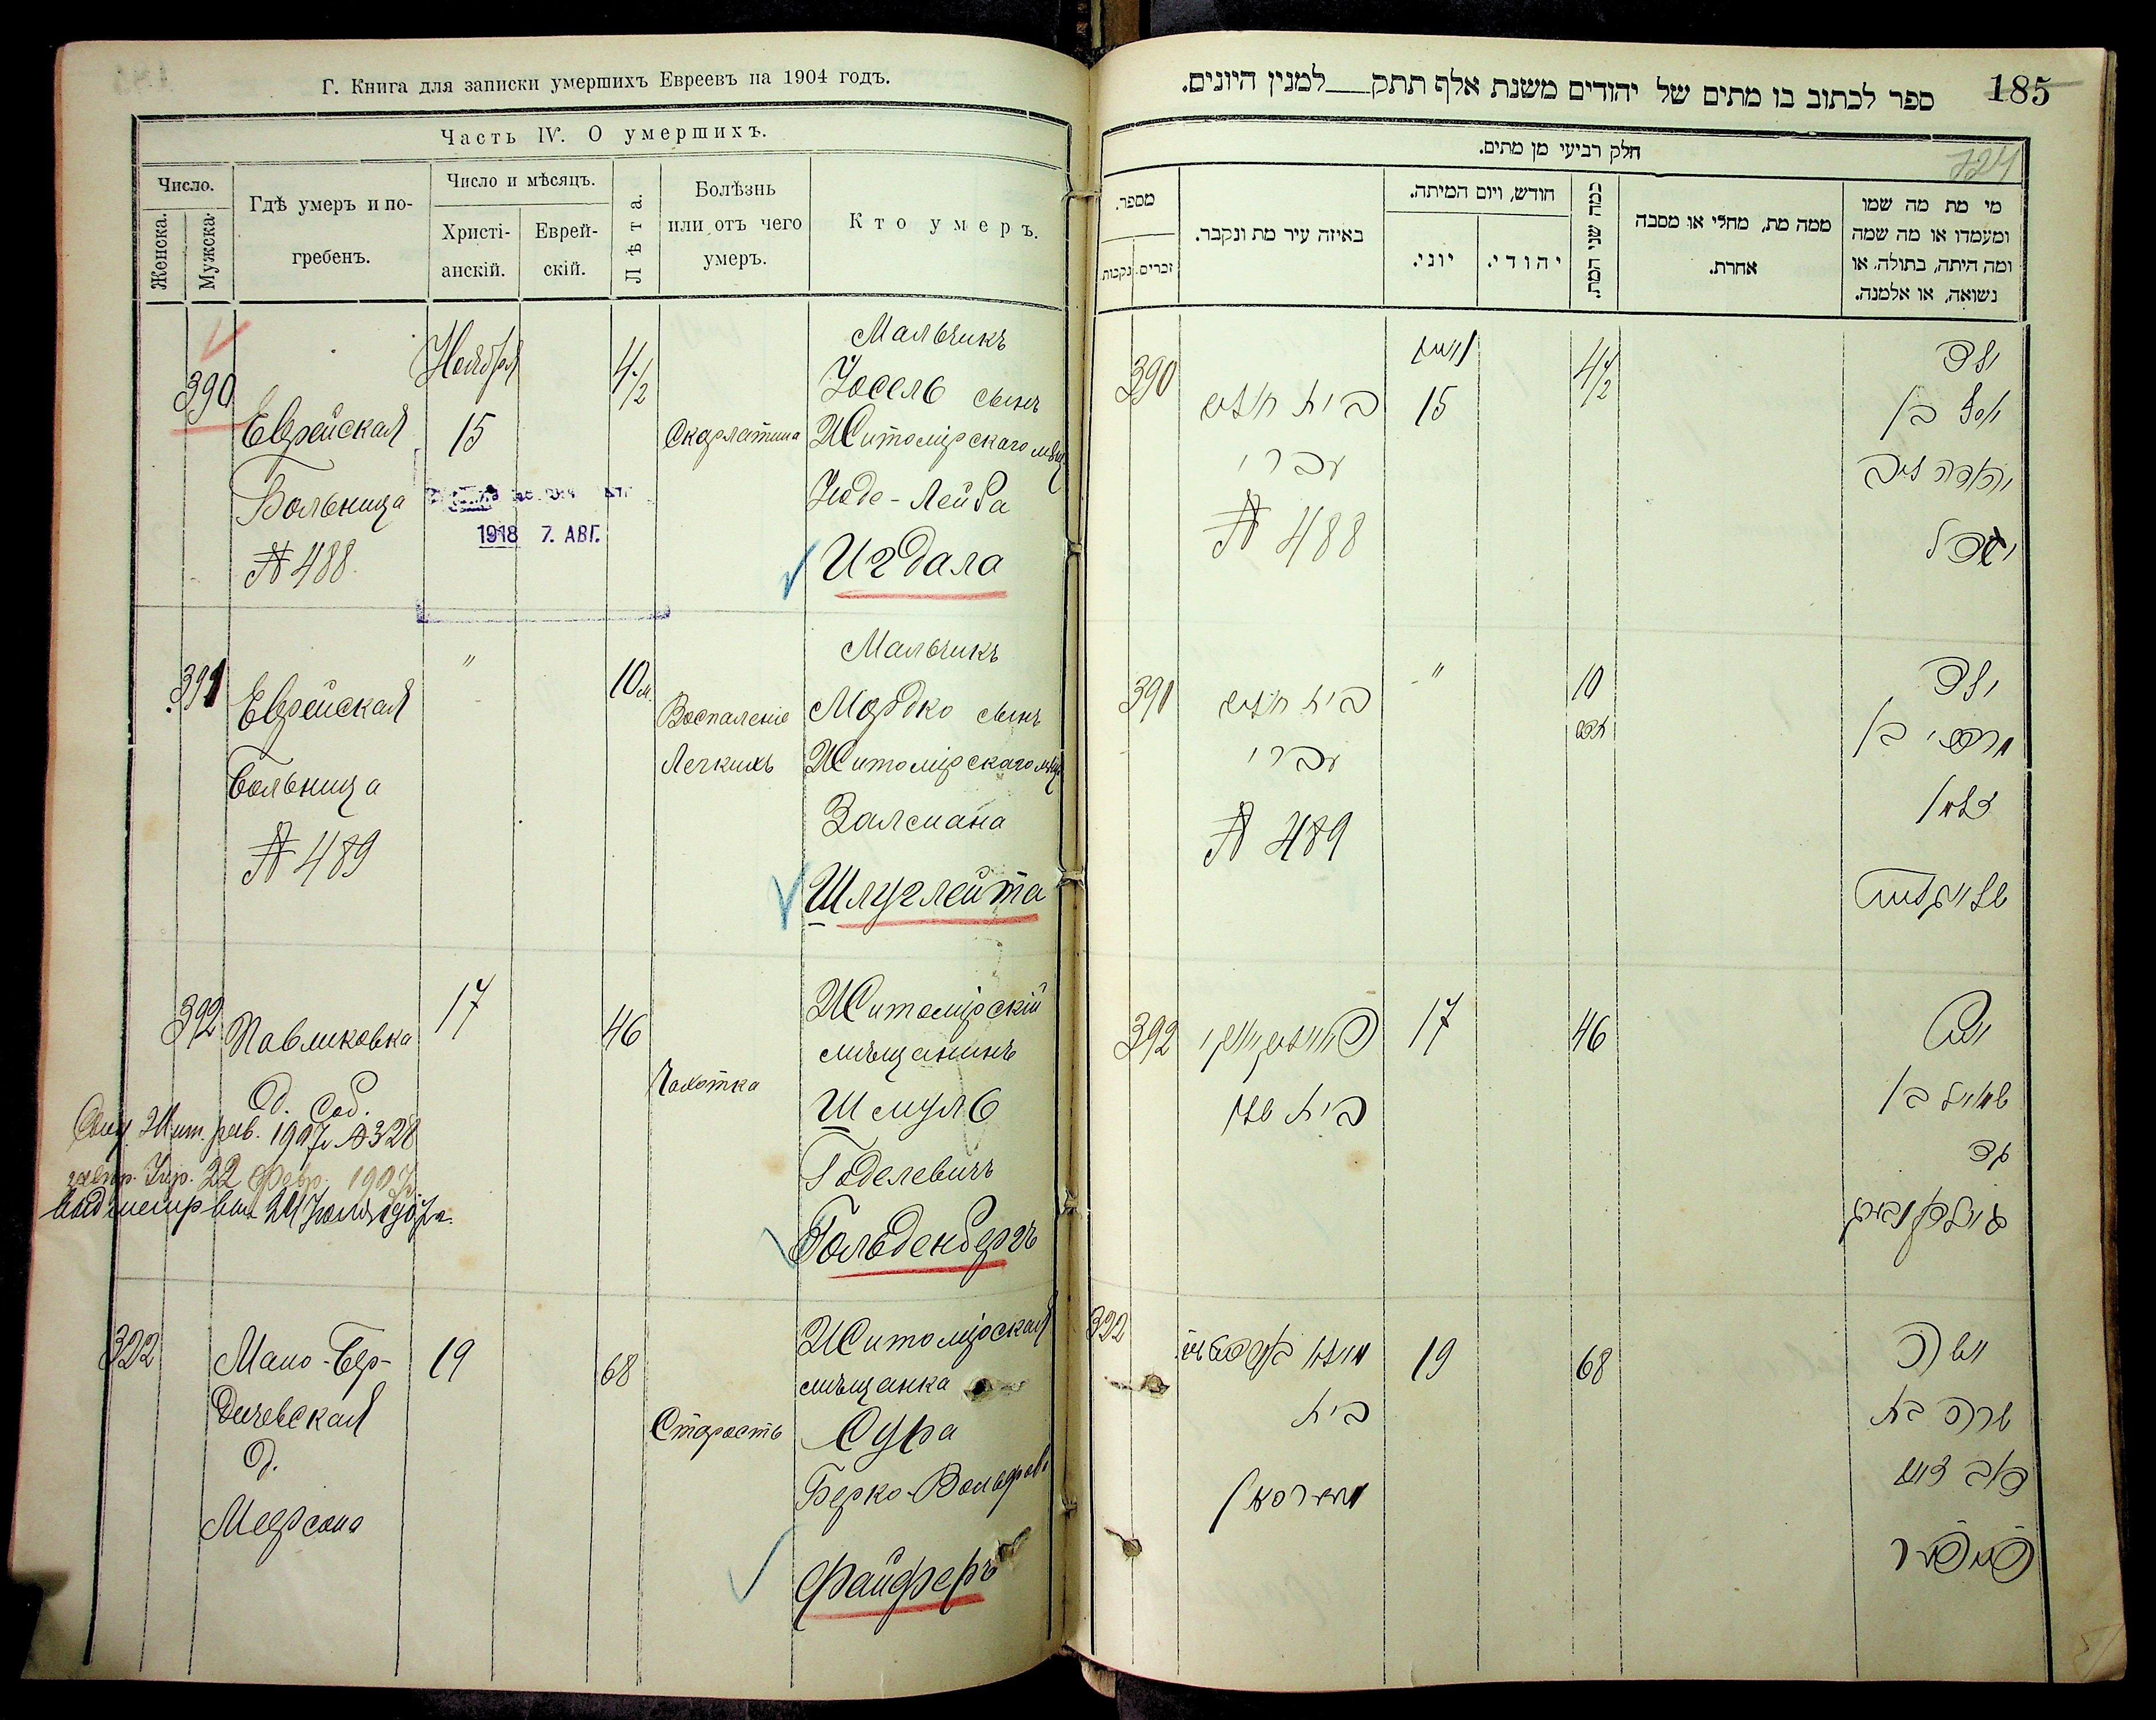 Г. Книга для записки умершихъ Евреевъ на 1904 годъ.
Часть IV. О умершихъ.
Число.
Женска.
Мужска.
Гдѣ умеръ и по-
гребенъ.
Число и мѣсяцъ.
Христі-
анскій.
Еврей-
скій.
Лѣта.
Болѣзнь
или отъ чего
умеръ.
Кто умеръ.
390
Еврейская
Больница
№ 488
Ноября
15
4 1/2
Скарлатина
Мальчикъ
Іосель сынъ
Житомірскаго мѣщ
Іюде-Лейба
Игдала
1918 7. АВГ.
391
Еврейская
больница
№ 489
"
10 м
Воспаленіе
Легкихъ
Мальчикъ
Мордко сынъ
Житомірскаго мѣщ
Залмана
Шлуглейта
392
Павликовка
д. соб.
17
46
Чахотка
Житомірскій
мѣщанинъ
Шмуль
Годелевичъ
Гольденбергъ
322
Мало-Бер-
дичевская
д.
Меерсона
19
68
Старость
Житомірская
мѣщанка
Сура
Берко-Вольфов
Файферъ
185
ספר לכתוב בו מתים של יהודים משנת אלף תתק למנין היונים.
724
חלק רביעי מן מתים.
מספר.
זכרים.
נקבות.
באיזה עיר מת ונקבר.
חודש, ויום המיתה.
יוני.
יהודי.
כמה שני המת.
ממה מת, מחלי או מסבה
אחרת.
מי מת מה שמו
ומעמדו או מה שמה
ומה היתה, בתולה, או
נשואה, או אלמנה.
390
בית חולים
עברי
№ 488
15
4 1/2
ילד
יוסל בן
יהודה ליב
391
בית חולים
עברי
№ 489
"
10
ילד
מרדכי בן
זלמן
392
17
46
שמואל בן
322
בית
מאירסאן
19
68
שרה בת
פייפער